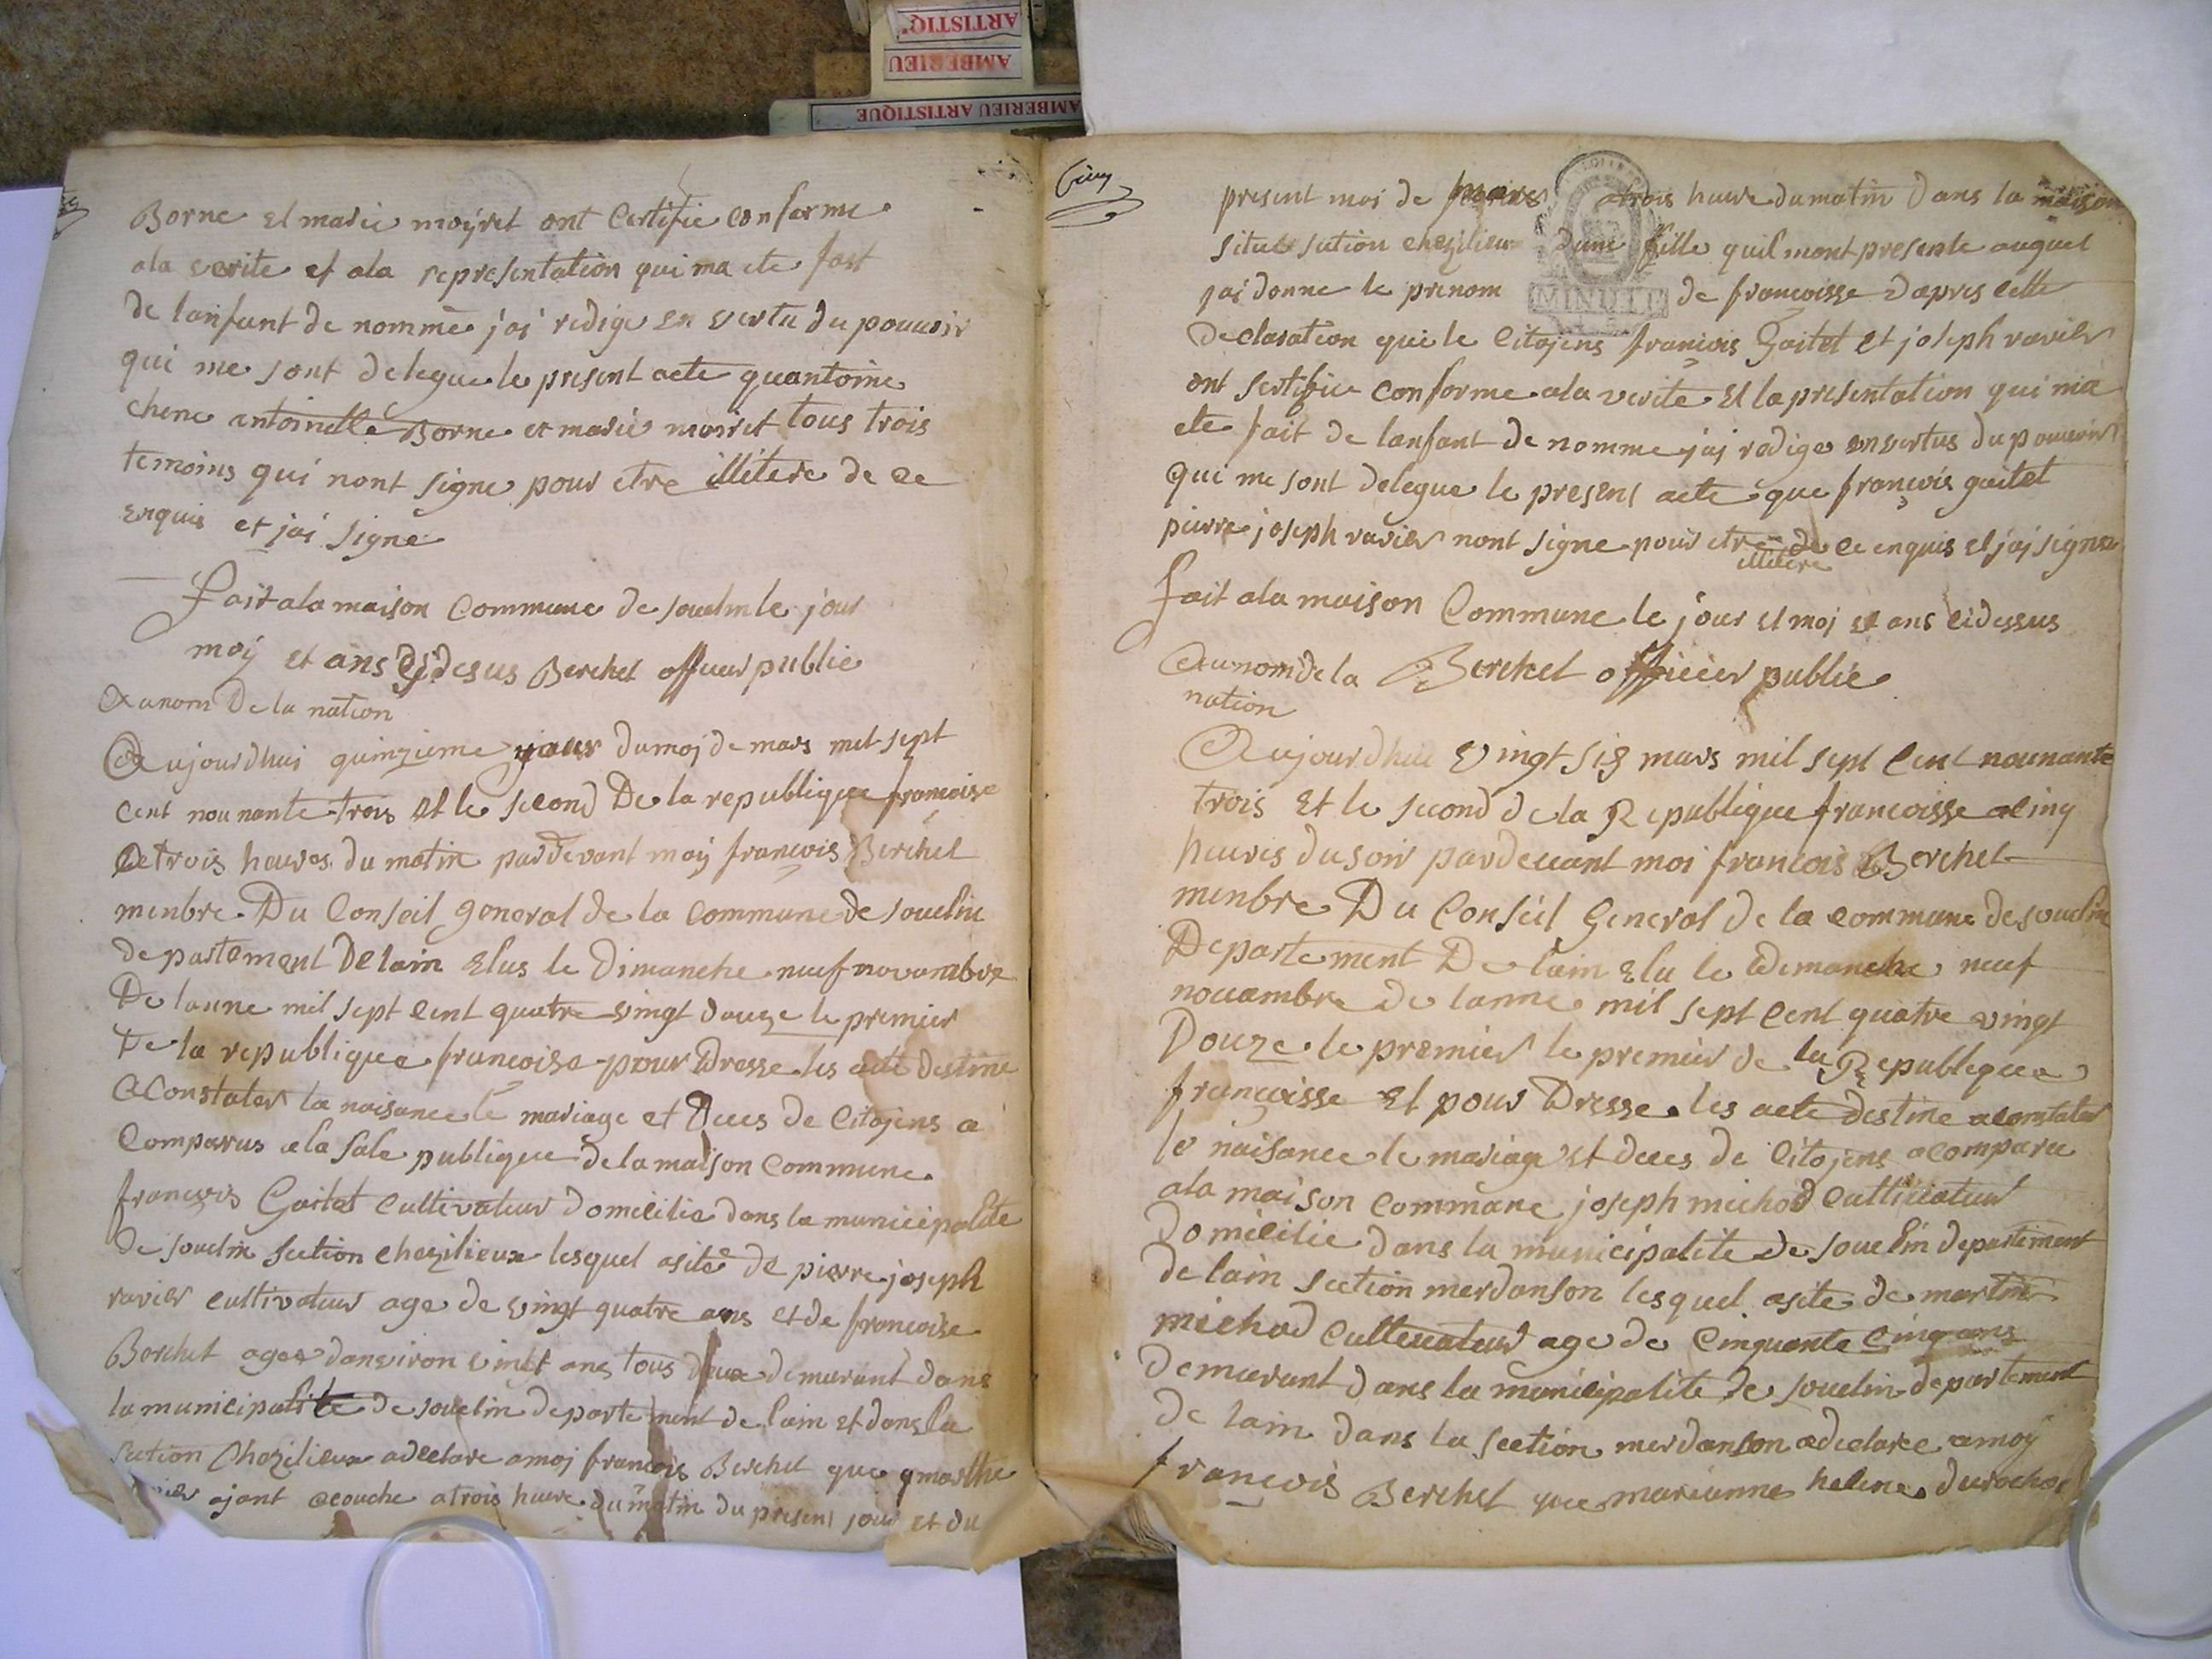 ARTISTIQ
AMBERIEU
AMBERIEU ARTISTIQUE
Borne et marie moÿret ont Certifie conforme
ala verite et ala representation qui ma ete fait
de lanfant de nomme jai redige en vertu du pouvoir
qui me sont delegue le present acte quantoine
chene antoinette Borne et marie moiret tous trois
temoins qui nont signe pour etre illitere de ce
enquis et jai signe
fait ala maison Commune de souclin le jour
moÿ et ans desus Berchet officier public
Au nom De la nation
Aujourdhui quinzieme jour du moj de mars mil sept
cent nounante trois et le second De la republique francoise
a trois heures du matin pardevant moÿ francois Berchet
menbre Du Conseil general de la commune de souclin
departement De lain Elus le Dimanche neuf novambre
De lanne mil sept cent quatre vingt douze le premier
De la republique francoise pour Dresse les acte destine
a Constater la naisance le mariage et deces de Citojens a
Comparus a la sale publique de la maison Commune
francois Gaitet cultivateur domicilie dans la municipalite
de souclin section chezilieux lesquel asite de pierre joseph
ravier cultivateur age de vingt quatre ans et de francoise
Berchet agee danviron vingt ans tous deux demurant dans
la municipalite de souclin departement de lain et dans la
section Chezilieux a declare a moj francois Berchet que marthe
ajant acouche a trois heure du matin du present jour et du
present moi de mars a trois heure du matin dans la maison
situe section chezilieux dune fille quil mont presente auquel
MINUTE
jai donne le prenom de francoisse dapres cette
declaration que le Citojens francois Gaitet et joseph ravier
ont sertifie conforme ala verite et la presentation qui ma
ete fait de lanfant de nomme jaj redige en vertus du pouvoir
qui me sont delegue le present acte que francois gaitet
pierre joseph ravier nont signe pour etre de ce enquis et jaj signe
illitere
fait ala maison Commune le jour et moj et ans cidessus
Au nom de la Berchet officier public
nation
Aujourdhui vingt six mars mil sept Cent nounante
trois et le second de la Republique francoisse a cinq
heures du soir pardevant moi francois Berchet
menbre Du Conseil General de la commune de souclin
Departement De lain elu le demanche neuf
novambre de lanne mil sept Cent quatre vingt
Douze le premier le premier de la Republique
francoisse et pour Dresse les acte destine a constater
le naisance le mariage et deces de Citojens a comparu
ala maison commune joseph michod cultivateur
Domicilie dans la municipalite de souclin departement
de lain section merdanson lesquel asite de martin
michod cultivateur age de Cinquante Cinq ans
demurant dans la municipalite de souclin departement
de lain dans la section merdanson a declare a moÿ
francois Berchet que marianne helene durochat